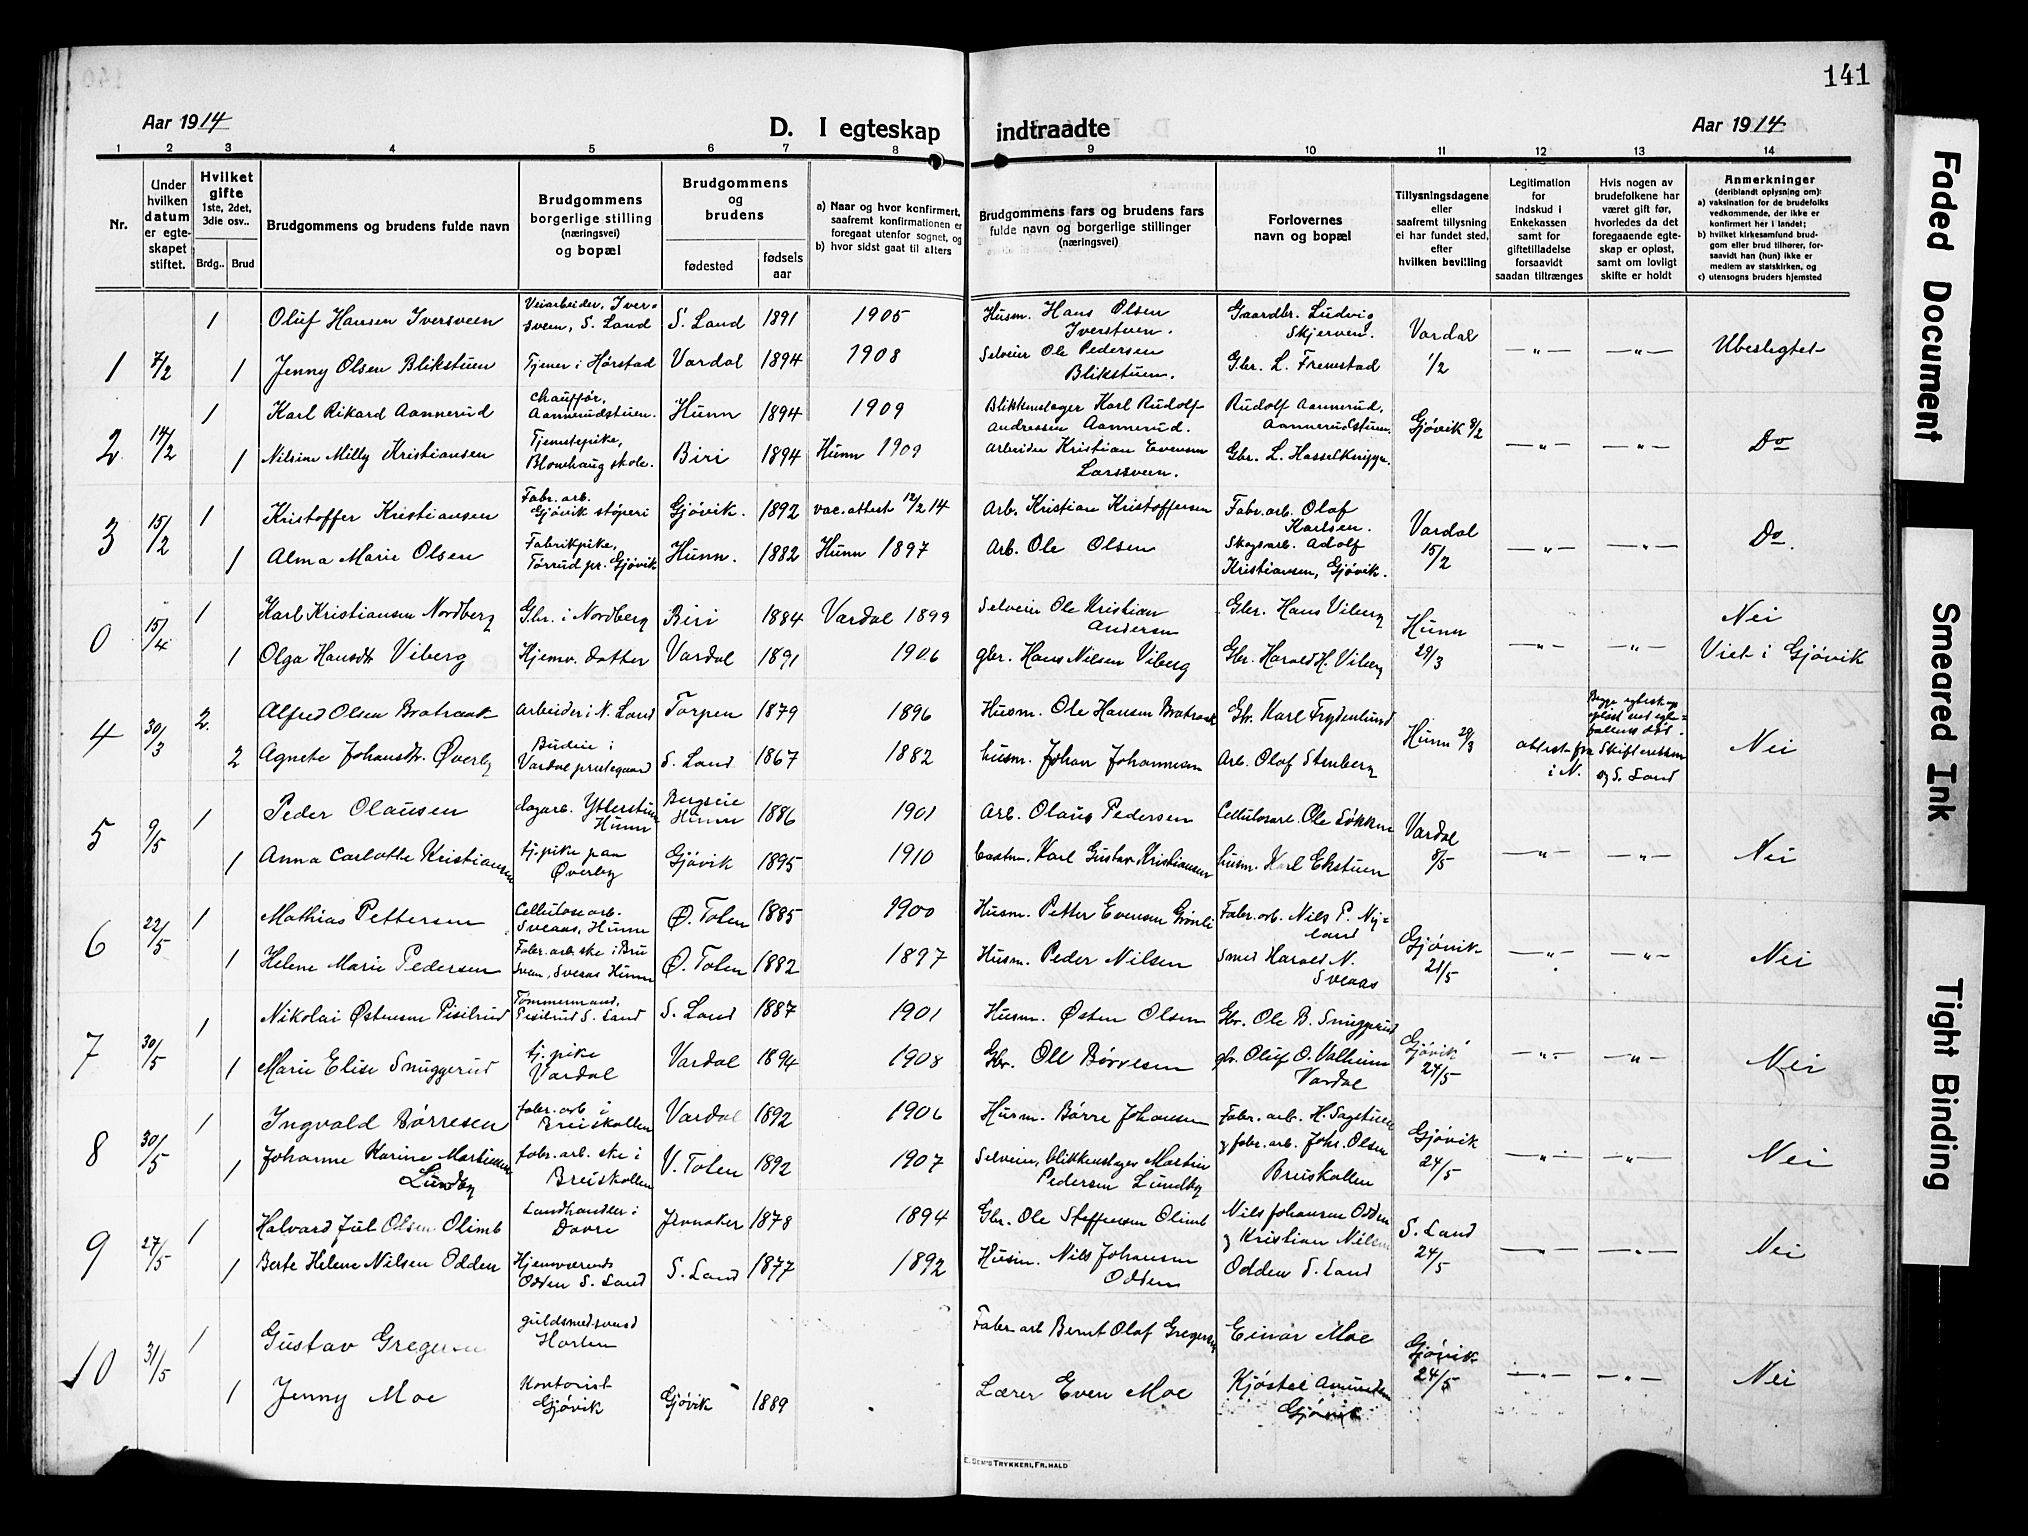 141
Aar 1914
D. I egteskap indtraadte
Aar 1914
1 2 3 4 5 6 7 8 9 10 11 12 13 14
Nr.
Under hvilken datum er egte-skapet stiftet.
Hvilket gifte 1ste, 2det, 3die osv..
Brdg.. Brud
Brudgommens og brudens fulde navn
Brudgommens borgerlige stilling (næringsvei) og bopæl
Brudgommens og brudens
fødested
fødsels aar
a) Naar og hvor konfirmert, saafremt konfirmationen er foregaat utenfor sognet, og
b) hvor sidst gaat til alters
Brudgommens fars og brudens fars fulde navn og borgerlige stillinger (næringsvei)
Forlovernes navn og bopæl
Tillysningsdagene eller saafremt tillysning ei har fundet sted, efter hvilken bevilling
Legitimation for indskud i Enkekassen samt for giftetilladelse forsaavidt saadan tiltrænges
Hvis nogen av brudefolkene har været gift før, hvorledes da det foregaaende egte-skap er opløst, samt om lovligt skifte er holdt
Anmerkninger (deriblandt oplysning om):
a) vaksination for de brudefolks vedkommende, der ikke er konfirmert her i landet;
b) hvilket kirkesamfund brud-gom eller brud tilhører, for-saavidt han (hun) ikke er medlem av statskirken, og
c) utensogns bruders hjemsted
1 7/2 1 Oluf Hansen Iversveen Veiarbeider, Iver-sveen, S. Land S. Land 1891 1905 Husm. Hans Olsen Iverstuen. Gaardbr. Ludvig Skjerven. Vardal 1/2 —"— —"— Ubeslegtet
1 Jenny Olsen Blikstuen Tjener i Hørstad Vardal 1894 1908 Selveier Ole Pedersen Blikstuen. Gbr. L. Fremstad
2 14/2 1 Karl Rikard Aannerud Chauffør, Aannerudstuen. Hunn 1894 1909 Blikkenslager Karl Rudolf Andreassen Aannerud. Rudolf Aannerud, Aannerudstuen. Gjøvik 8/2 —"— —"— Do
1 Nilsine Milly Kristiansen Tjenestepike, Blomhaug skole. Biri 1894 Hunn 1909 Arbeider Kristian Evensen Larssveen. Gbr. L.
3 15/2 1 Kristoffer Kristiansen Fabr. arb. Gjøvik støperi Gjøvik. 1892 vac. attest 12/2 14 Arb. Kristian Kristoffersen Fabr. arb. Olaf Karlsen. Vardal 15/2 —"— —"— Do.
1 Alma Marie Olsen Fabrikpike, Tørrud pr. Gjøvik Hunn. 1882 Hunn 1897 Arb. Ole Olsen Skogsarb. Adolf Kristiansen, Gjøvik.
0 15/4 1 Karl Kristiansen Nordberg Gbr. i Nordberg Biri 1884 Vardal 1899 Selveier Ole Kristian Andersen Gbr. Hans Viberg Hunn 29/3 —"— —"— Nei
1 Olga Hansdtr Viberg Hjemv. datter Vardal 1891 1906 gbr. Hans Nilsen Viberg Gbr. Harald H. Viberg Viet i Gjøvik
4 30/3 2. Alfred Olsen Bratraak Arbeider i N. Land Torpen 1879 1896 Husm. Ole Hansen Bratraak Gbr. Karl Frydenlund Hunn 29/3 attest fra Skifteretten i N. og S. Land Begge egteskap opløst ved egte-fællens død. Nei
2 Agnete Johansdtr. Øverby Budeie i Vardal prestegaard S. Land 1867 1882 husm. Johan Johannesen Arb. Olaf Stenberg
5 9/5 1 Peder Olausen dagarb. Ytterstuen Hunn Bergseie Hunn 1886 1901 Arb. Olaus Pedersen Cellulosearb. Ole Løkken Vardal 8/5 —"— —"— Nei
1 Anna Carlotte Kristiansen tj. pike paa Øverby Gjøvik 1895 1910 Karl Gustav Kristiansen husm. Karl Ekstuen
6 22/5 1 Mathias Pettersen Cellulosearb. Sveaas, Hunn Ø. Toten 1885 1900 Husm. Petter Evensen Grønli Fabr. arb. Nils P. Ny=land Gjøvik 21/5 —"— —"— Nei
1 Helene Marie Pedersen Fabr. arb.ske i Bru Sveaas Hunn Ø. Toten 1882 1897 Husm. Peder Nilsen Smed Harald N. Sveaas
7 30/5 1 Nikolai Østensen Pisilrud Tømmermand, Pisilrud S. Land S. Land 1887 1901 Husm. Østen Olsen Gbr. Ole B. Snuggerud Gjøvik 24/5 —"— —"— Nei
1 Marie Elise Snuggerud tj. pike Vardal Vardal 1894 1908 Gbr. Ole Børresen gbr. Oluf O. Valheim Vardal
8 30/5 1 Ingvald Børresen fabr. arb i Breiskallen Vardal 1892 1906 Husm. Børre Johansen Fabr. arb. H. Sagstuen Gjøvik 24/5 —"— —"— Nei
1 Johanne Karine Martinsen Lundby fabr. arb. ske i Breiskallen V. Toten 1892 1907 Selveier, blikkenslager Martin Pedersen Lundby og fabr. arb. Johs. Olsen Breiskallen
9 27/5 1 Halvard Jul Olsen Olimb Landhandler i Dovre Jevnaker 1878 1894 Gbr. Ole Steffensen Olimb Nils Johansen Odden S. Land 24/5 —"— —"— Nei
1 Berte Helene Nilsen Odden Hjemværende Odden S. Land S. Land 1877 1892 Husm. Nils Johansen Odden og Kristian Nilsen Odden S. Land
10 31/5 1 Gustav Gregersen guldsmedsvend Horten Fabr. arb Bernt Olaf Gregersen Einar Moe Gjøvik 24/5 —"— —"— Nei
1 Jenny Moe Kontorist Gjøvik Gjøvik 1889 Lærer Even Moe Kjøstel Amundsen Gjøvik
TRYKKERI, FR.HALD
Faded Document
Smeared Ink
Tight Binding